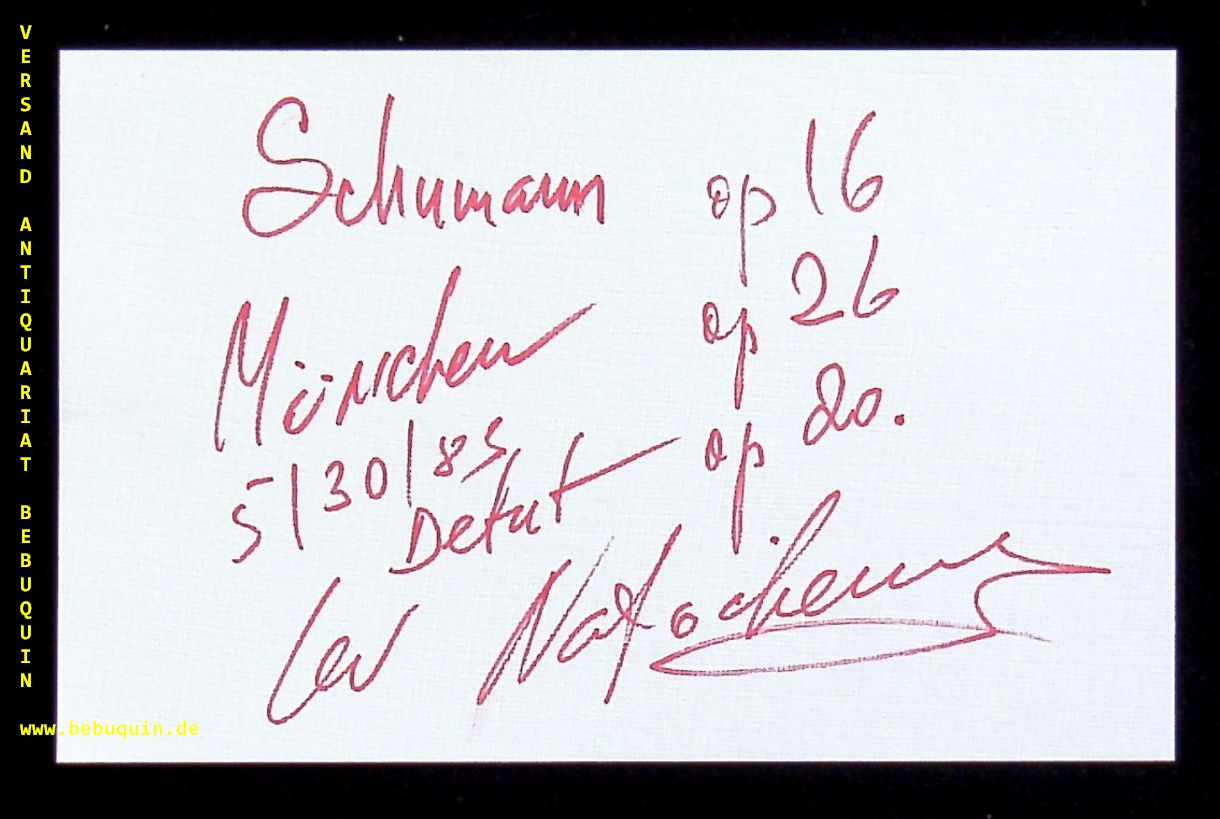 VERSAND ANTIQUARIAT BEBUQUIN
Schumann op 16
München op 26
5/30/85 op 20.
Debut
Lev Natochenny
www.bebuquin.de